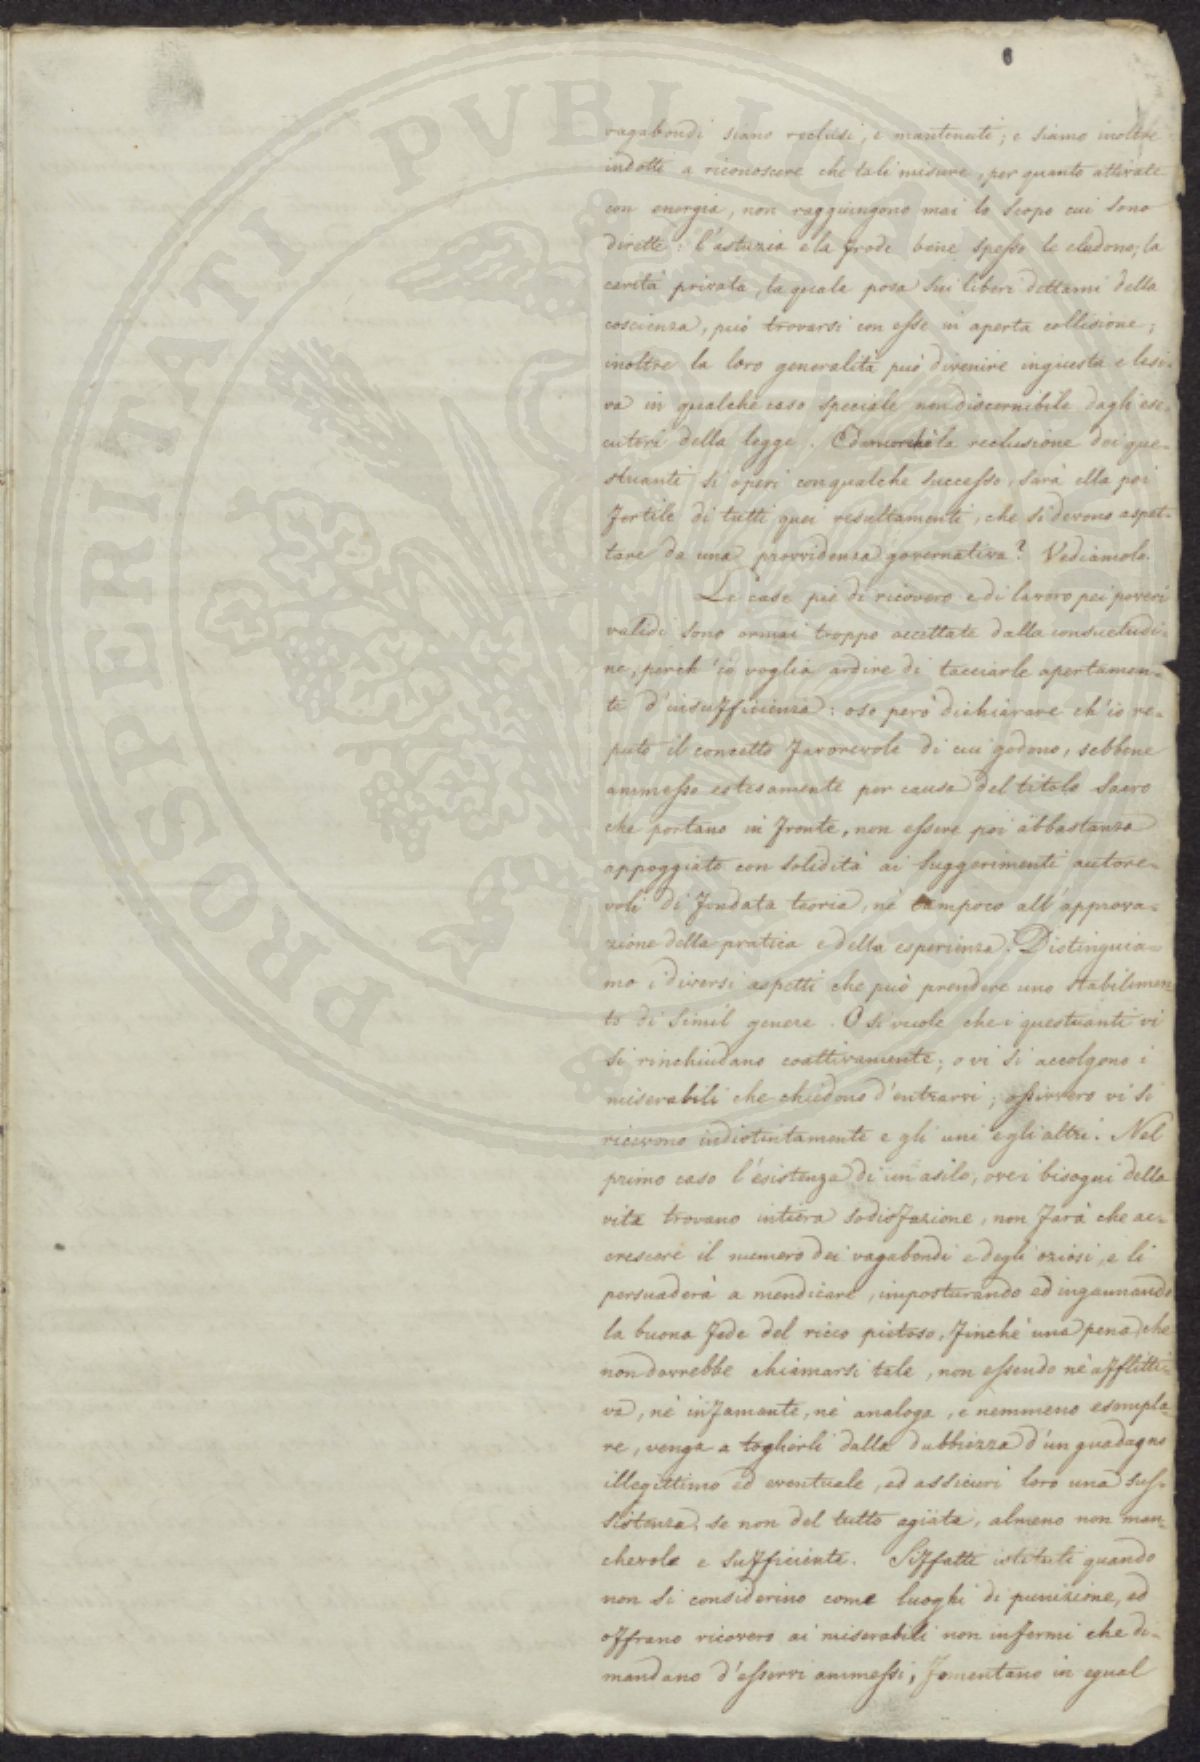 vagabondi siano reclusi, e mantenuti; e siamo inoltre
indotti a riconoscere che tali misure, per quanto attivate
con energia, non raggiungono mai lo scopo cui sono
dirette: l'astuzia e la frode bene spesso le eludono; la
carità privata, la quale posa sui liberi dettami della
coscienza, può trovarsi con esse in aperta collisione;
inoltre la loro generalità può divenire ingiusta e lesi-
va in qualche caso speciale non discernibile dagli ese-
cutori della legge. la reclusione dei que-
stuanti si operi con qualche successo, sarà ella poi
fertile di tutti quei resultamenti, che si devono aspet-
tare da una provvidenza governativa? Vediamolo.
Le case pie di ricovero e di lavoro pei poveri
validi sono ormai troppo accettate dalla consuetudi-
ne, perch'io voglia ardire di tacciarle apertamen-
te d'insufficienza: oso però dichiarare ch'io re-
puto il concetto favorevole di cui godono, sebbene
ammesso estesamente per causa del titolo sacro
che portano in fronte, non essere poi abbastanza
appoggiato con solidità ai suggerimenti autore-
voli di fondata teoria, nè tampoco all'approva-
zione della pratica e della esperienza. Distinguia-
mo i diversi aspetti che può prendere uno stabilimen-
to di simil genere. O si vuole che i questuanti vi
si rinchiudano coattivamente; o vi si accolgono i
miserabili che chiedono d'entrarvi; ossivvero vi si
ricevono indistintamente e gli uni e gli altri. Nel
primo caso l'esistenza di un asilo, ove i bisogni della
vita trovano intiera sodisfazione, non farà che ac-
crescere il numero dei vagabondi e degli oziosi, e li
persuaderà a mendicare, imposturando ed ingannando
la buona fede del ricco pietoso, finchè una pena, che
non dovrebbe chiamarsi tale, non essendo nè afflitti-
va, nè infamante, nè analoga, e nemmeno esempla-
re, venga a toglierli dalla dubbiezza d'un guadagno
illegittimo ed eventuale, ed assicuri loro una sus-
sistenza, se non del tutto agiata, almeno non man-
chevole e sufficiente. Siffatti istituti quando
non si considerino come luoghi di punizione, ed
offrano ricovero ai miserabili non infermi che di-
mandano d'esservi ammessi, fomentano in egual
PROSPERITATI PVBLICAE